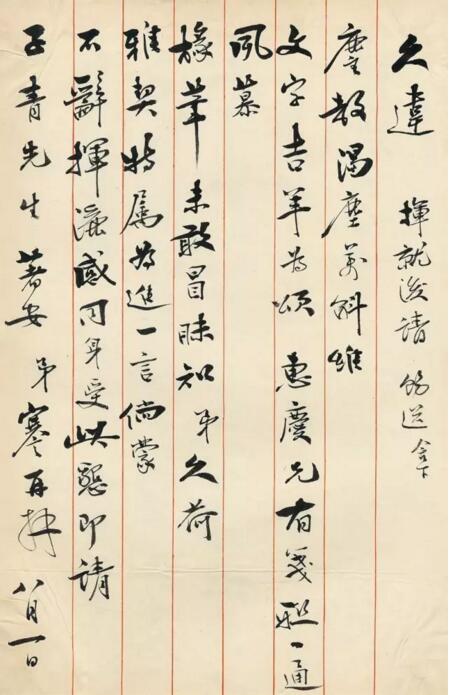 久違 揮就後請 飭送舍下
麈教渴塵萬斛維
文字吉羊為頌 惠慶兄有箋一通
夙慕
椽筆未敢冒昧知 弟久荷
雅契特属為進一言倘蒙
不辭揮灑感同身受此懇即請
子青先生著安 弟再拜 八月一日